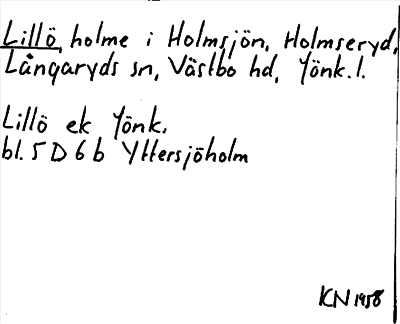 Lillö, holme i Holmsjön, Holmseryd,
Långaryds sn, Västbo hd, Jönk. l.
Lillö ek Jönk.
bl. 5 D 6 b Yttersjöholm
KN 1958